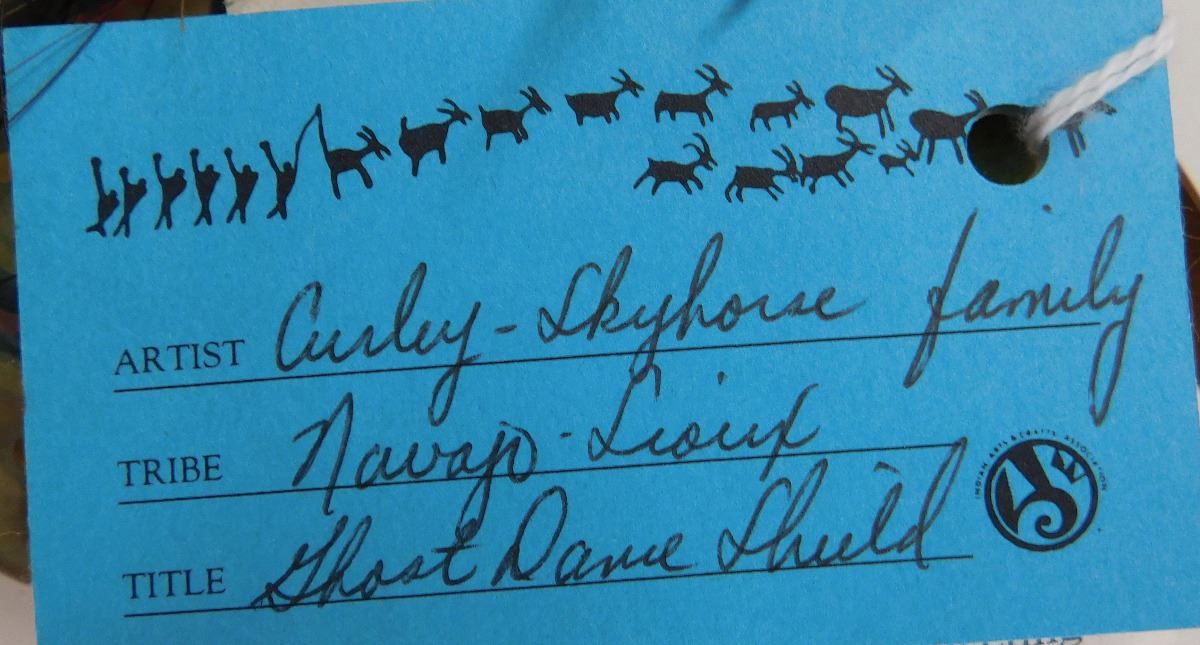 ARTIST Curley-Skyhorse family
TRIBE Navajo-Sioux
INDIAN ARTS & CRAFTS ASSOCIATION
TITLE Ghost Dance Shield